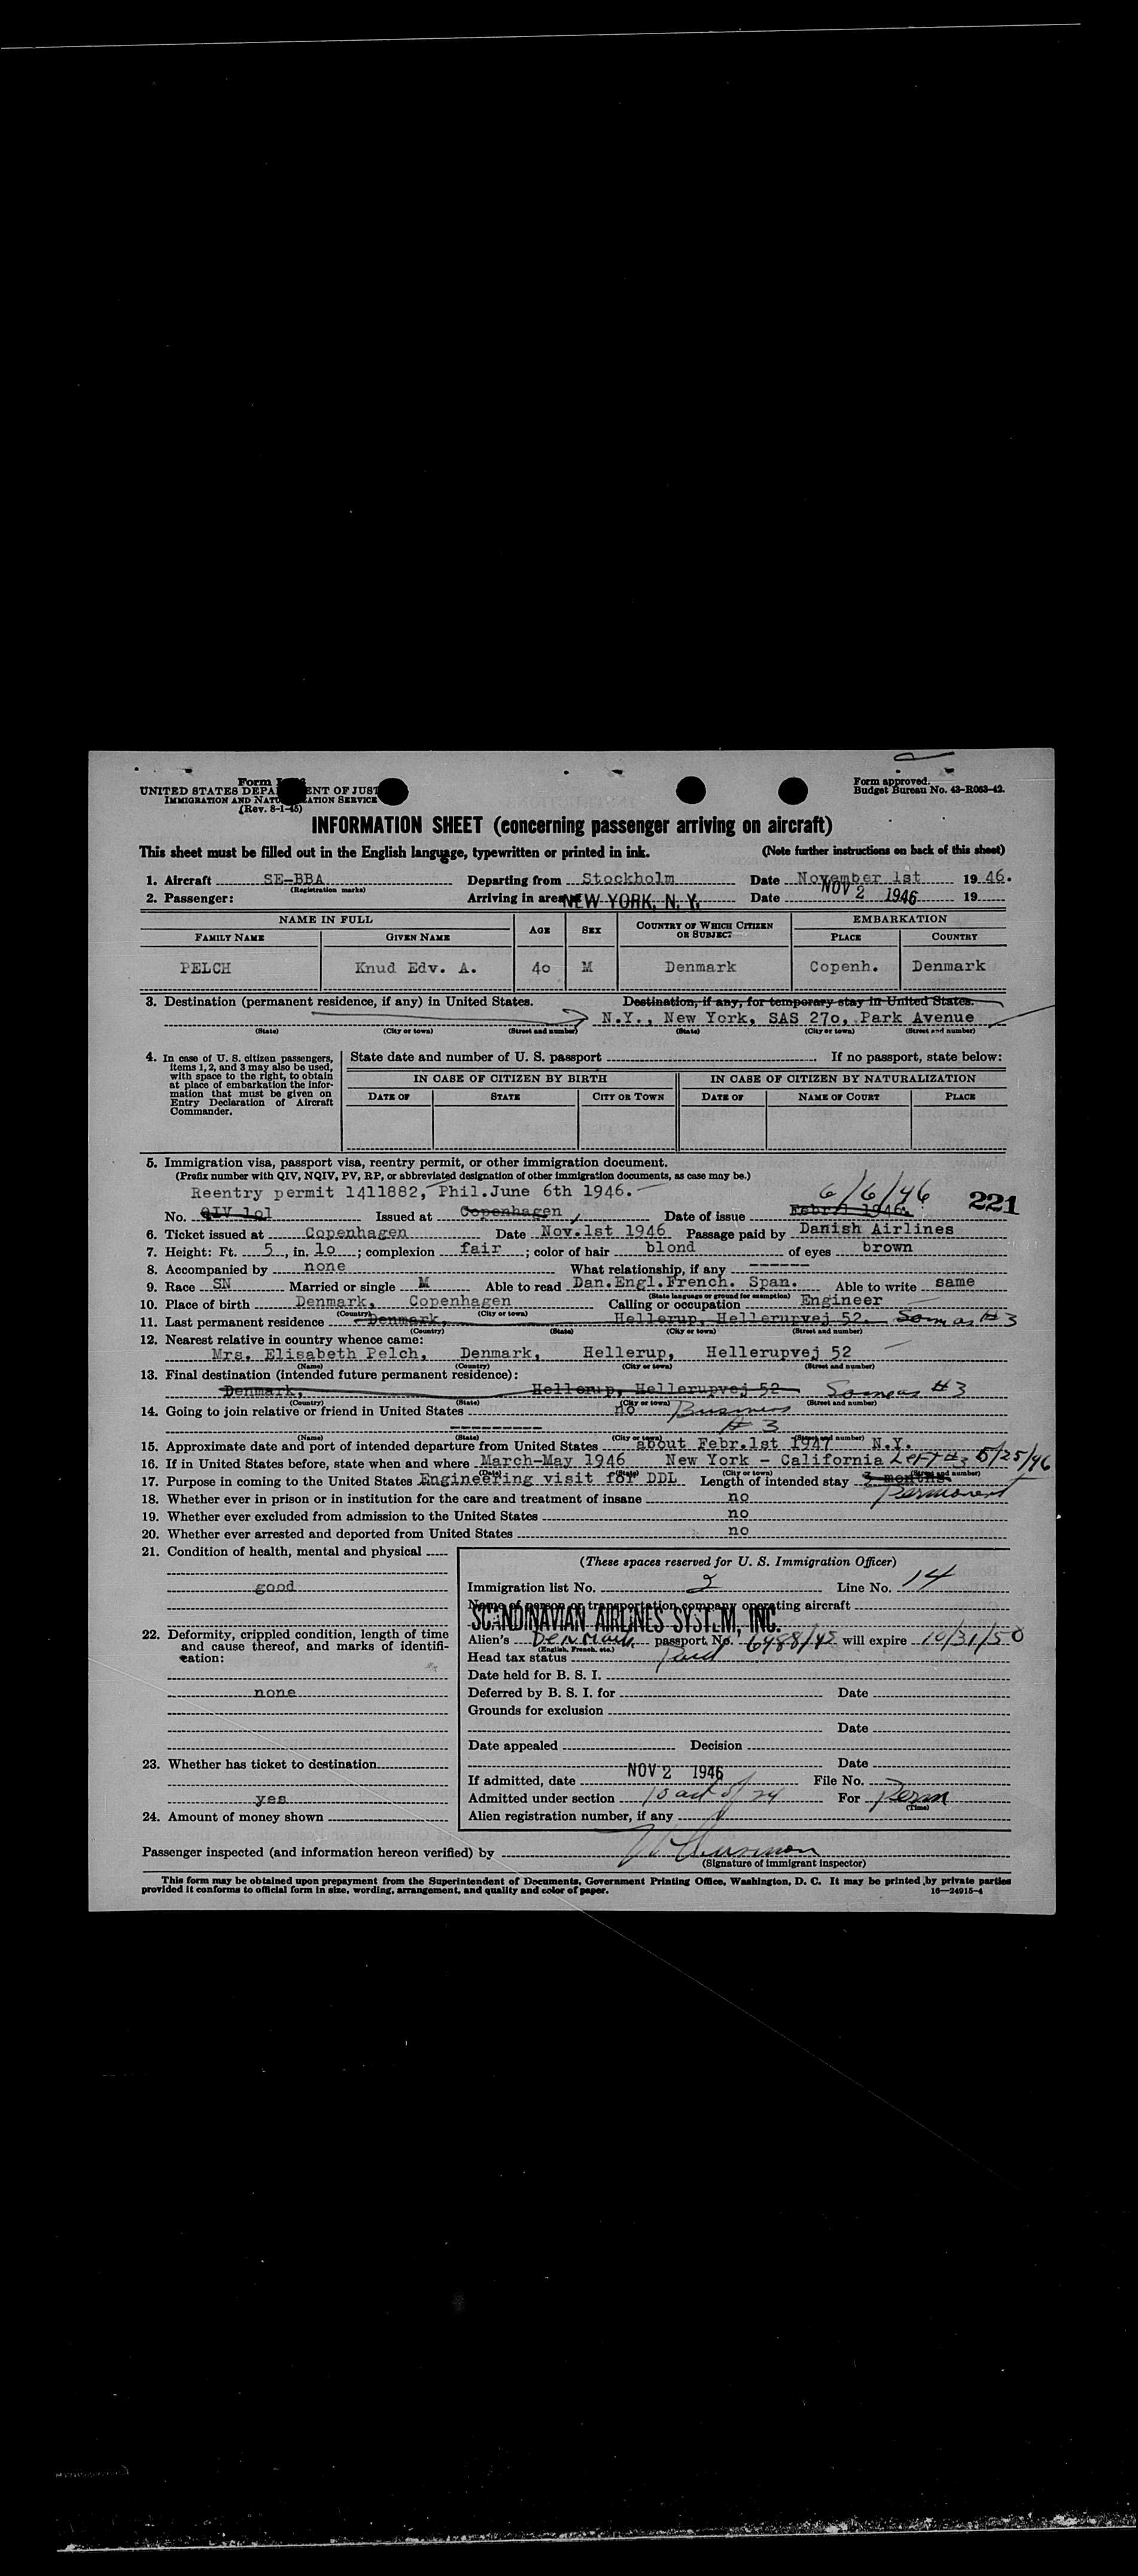 Form I-
UNITED STATES DEPA ENT OF JUST
IMMIGRATION AND NATU ATION SERVICE
(Rev. 8-1-45)
Form approved.
Budget Bureau No. 43-R063-42.
INFORMATION SHEET (concerning passenger arriving on aircraft)
This sheet must be filled out in the English language, typewritten or printed in ink. (Note further instructions on back of this sheet)
1. Aircraft SE-BBA Departing from Stockholm Date November 1st 19 46.
(Registration marks)
2. Passenger: Arriving in area NEW YORK, N. Y. Date NOV 2 1946 19
NAME IN FULL AGE SEX COUNTRY OF WHICH CITIZEN OR SUBJECT EMBARKATION
FAMILY NAME GIVEN NAME PLACE COUNTRY
PELCH Knud Edv. A. 40 M Denmark Copenh. Denmark
3. Destination (permanent residence, if any) in United States. Destination, if any, for temporary stay in United States.
N.Y., New York, SAS 270, Park Avenue
(State) (City or town) (Street and number) (State) (City or town) (Street and number)
4. In case of U. S. citizen passengers, items 1, 2, and 3 may also be used, with space to the right, to obtain at place of embarkation the information that must be given on Entry Declaration of Aircraft Commander.
State date and number of U. S. passport If no passport, state below:
IN CASE OF CITIZEN BY BIRTH IN CASE OF CITIZEN BY NATURALIZATION
DATE OF STATE CITY OR TOWN DATE OF NAME OF COURT PLACE
5. Immigration visa, passport visa, reentry permit, or other immigration document.
(Prefix number with QIV, NQIV, PV, RP, or abbreviated designation of other immigration documents, as case may be.)
Reentry permit 1411882, Phil.June 6th 1946. 6/6/46 221
No. QIV 101 Issued at Copenhagen Date of issue Febr. 1946.
6. Ticket issued at Copenhagen Date Nov.1st 1946 Passage paid by Danish Airlines
7. Height: Ft. 5, in. 10; complexion fair; color of hair blond of eyes brown
8. Accompanied by none What relationship, if any ------
9. Race SN Married or single M Able to read Dan.Engl.French. Span. Able to write same
(State language or ground for exemption)
10. Place of birth Denmark, Copenhagen Calling or occupation Engineer
(Country) (City or town)
11. Last permanent residence Denmark, Hellerup, Hellerupvej 52. Same as #3
(Country) (State) (City or town) (Street and number)
12. Nearest relative in country whence came:
Mrs. Elisabeth Pelch, Denmark, Hellerup, Hellerupvej 52
(Name) (Country) (City or town) (Street and number)
13. Final destination (intended future permanent residence):
Denmark, Hellerup, Hellerupvej 52 Same as #3
(Country) (State) (City or town) (Street and number)
14. Going to join relative or friend in United States no Business
---------- #3
(Name) (State) (City or town) (Street and number)
15. Approximate date and port of intended departure from United States about Febr.1st 1947 N.Y.
16. If in United States before, state when and where March-May 1946 New York - California Left 5/25/46
(Date) (State) (City or town) (Street and number)
17. Purpose in coming to the United States Engineering visit for DDL Length of intended stay 3 months. Permanent
18. Whether ever in prison or in institution for the care and treatment of insane no
19. Whether ever excluded from admission to the United States no
20. Whether ever arrested and deported from United States no
21. Condition of health, mental and physical
good
22. Deformity, crippled condition, length of time and cause thereof, and marks of identification:
none
23. Whether has ticket to destination
yes
24. Amount of money shown
(These spaces reserved for U. S. Immigration Officer)
Immigration list No. 2 Line No. 14
Name of person or transportation company operating aircraft
SCANDINAVIAN AIRLINES SYSTEM, INC.
Alien's Denmark passport No. 6488/45 will expire 10/31/50
(English, French, etc.)
Head tax status Paid
Date held for B. S. I.
Deferred by B. S. I. for Date
Grounds for exclusion
Date
Date appealed Decision
Date
If admitted, date NOV 2 1946 File No.
Admitted under section 10 act of 24 For Perm
(Time)
Alien registration number, if any
Passenger inspected (and information hereon verified) by
(Signature of immigrant inspector)
This form may be obtained upon prepayment from the Superintendent of Documents, Government Printing Office, Washington, D. C. It may be printed by private parties
provided it conforms to official form in size, wording, arrangement, and quality and color of paper. 16—24915-4